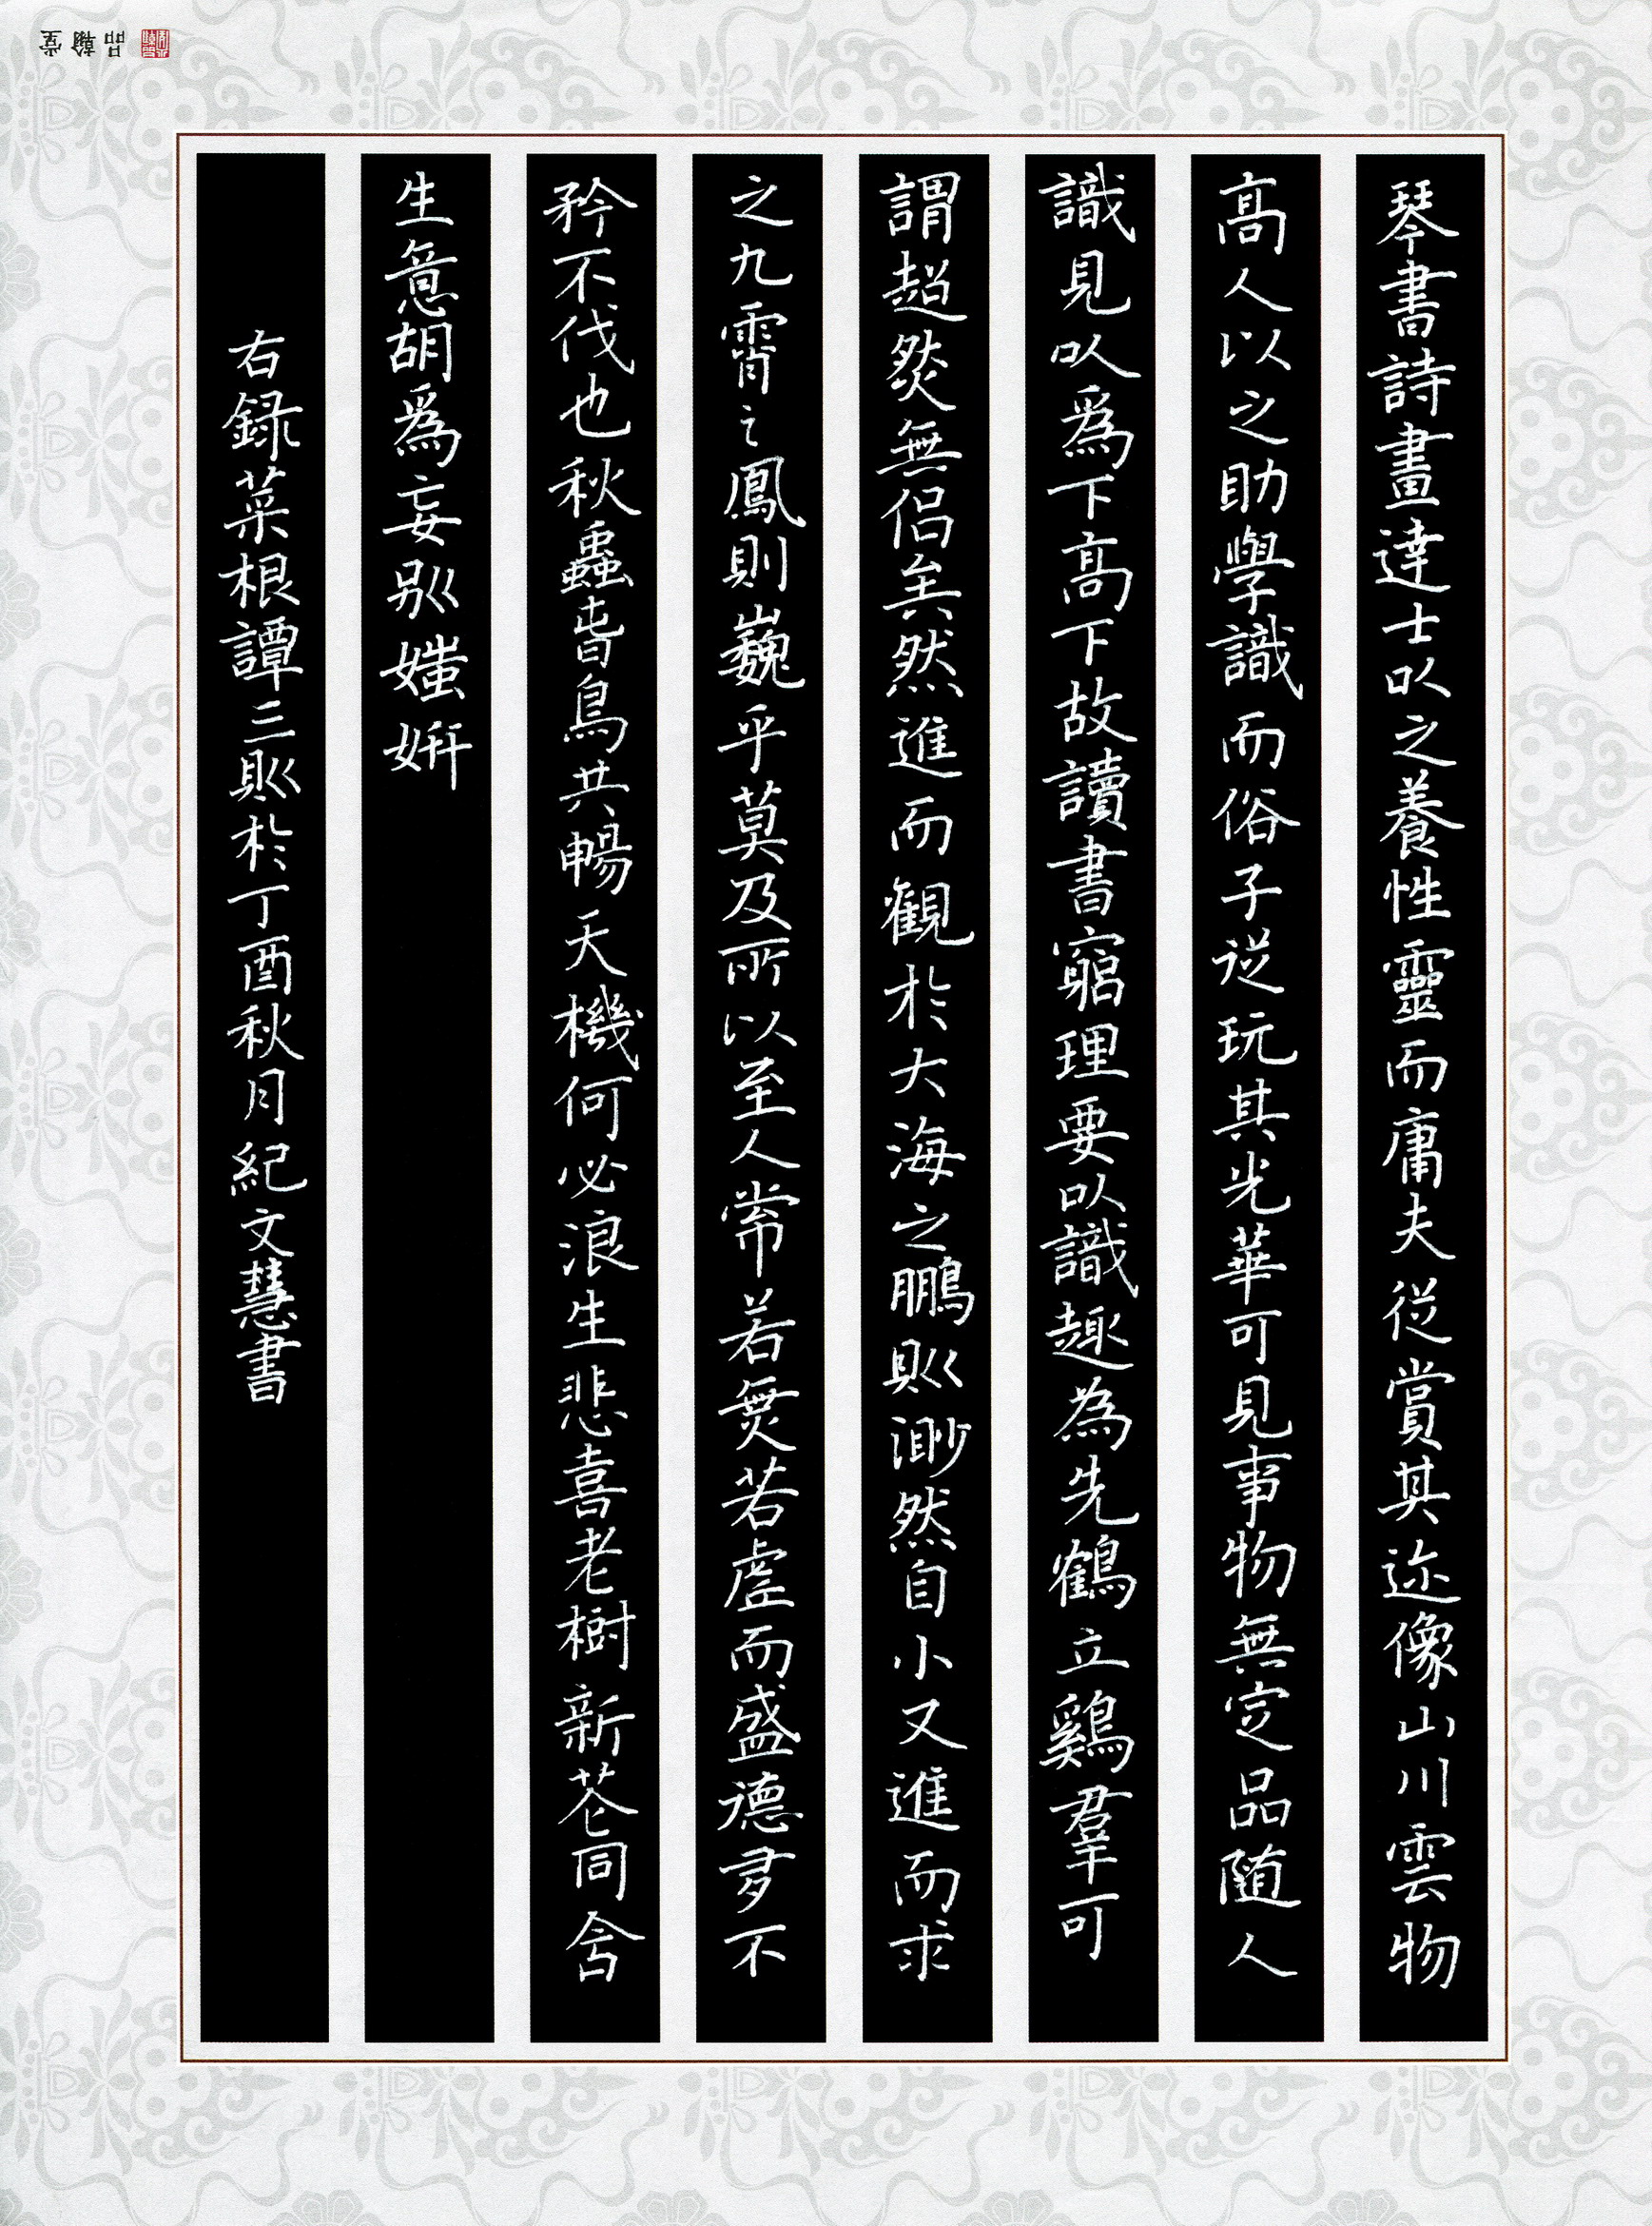 琴書詩畫達士以之養性靈而庸夫從賞其迹像山川雲物
高人以之助學識而俗子從玩其光華可見事物無定品隨人
識見以為下高下故讀書窮理要以識趣為先鶴立鷄羣可
謂超然無侶矣然進而觀於大海之鵬則渺然自小又進而求
之九霄之鳳則巍乎莫及所以至人常若無若虛而盛德多不
矜不伐也秋蟲春鳥共暢天機何必浪生悲喜老樹新花同含
生意胡為妄別媸妍
右録菜根譚三則於丁酉秋月紀文慧書
品翰堂